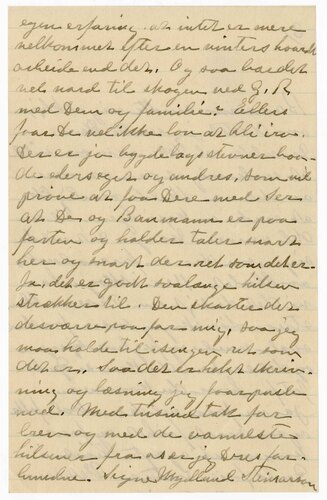 egen erfaring at intet er mere
velkommet efter en vinters haardt
arbeide end det. Og saa bærdet
vel nord til skogen ved G. R
med Dem og familie? Ellers
faar De vel ikke lov at bli iro.
Der er jo bygdelagsstevner baa-
de eders eget og andres, som vil
prøve at faa Dere med Ser
at De og Baumann er paa
farten og holder taler snart
her og snart der ret som det er.
Ja, det er godt saalange hilsen
strækker til. Den skorter det
desværre paa for mig, saa jeg
maa holde til i sengen ret som
det er. Saa det er helst skriv-
ning og læsning jeg faar pusle
med. Med tusind tak for
brev og med de varmeste
hilsener fra os er jeg Deres for-
bundne. Signe Mydland Steinarson